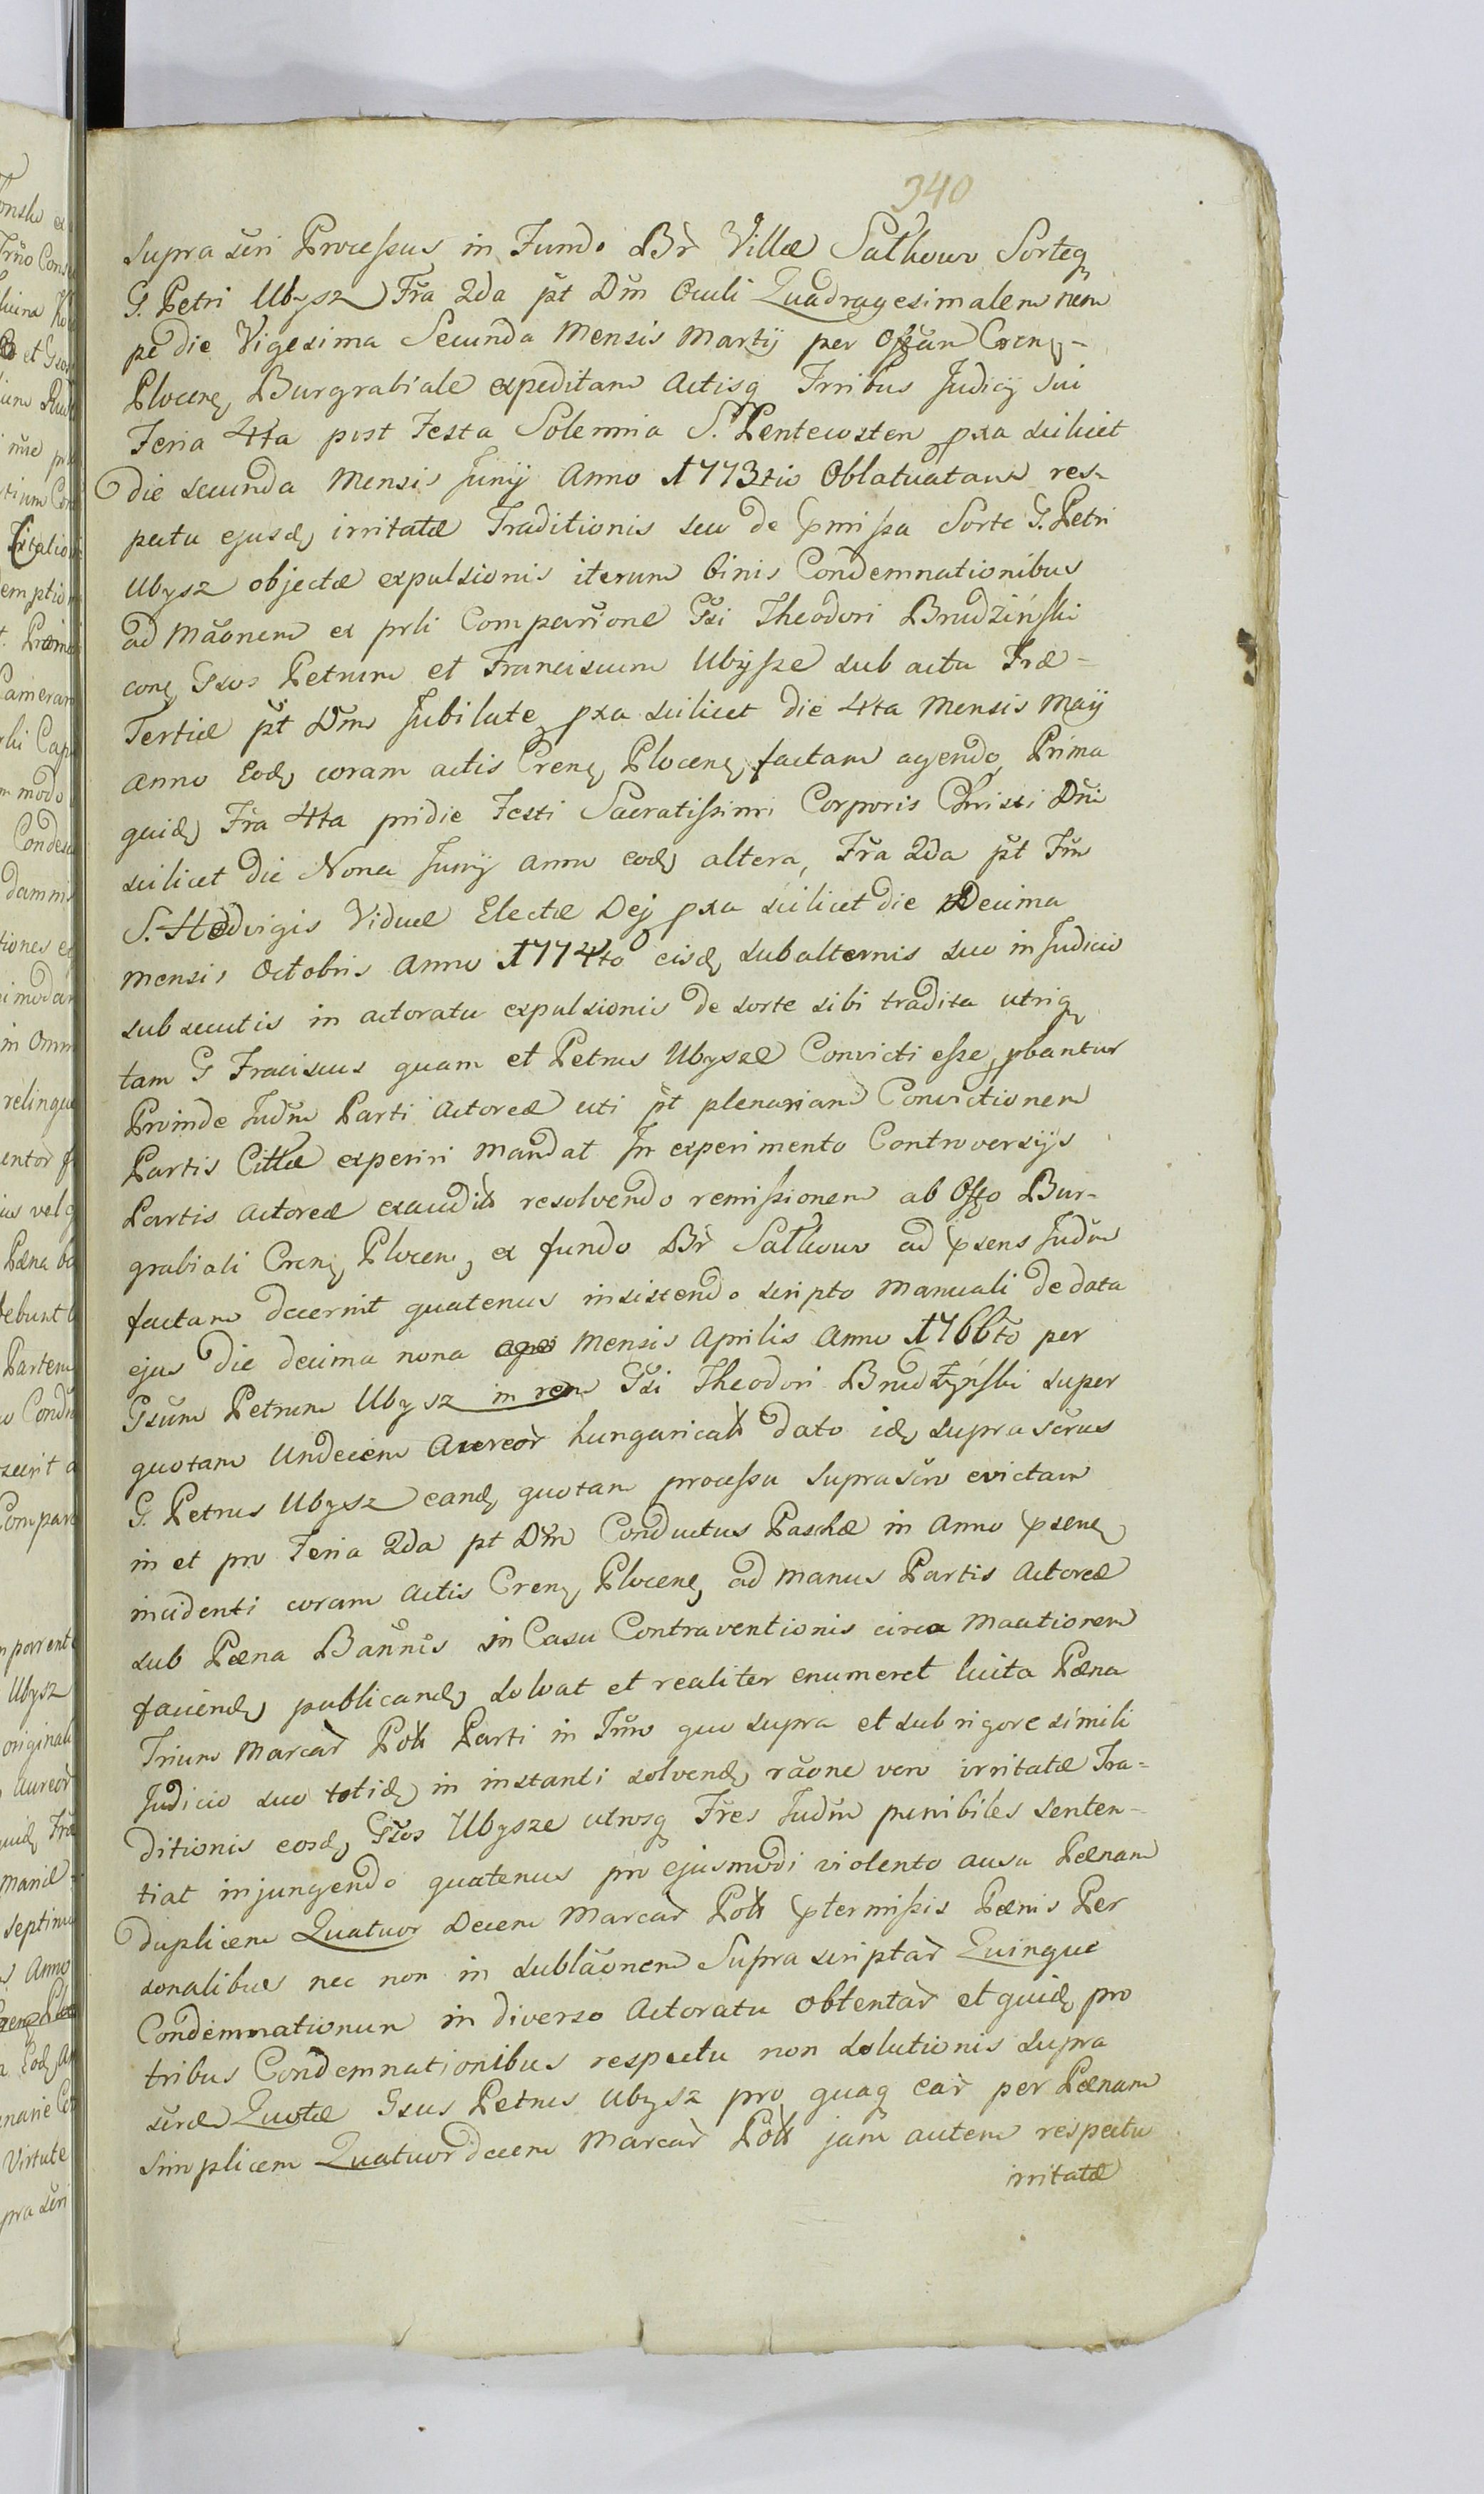 340
supra scri Processus in Fundo Br Villæ Sałkowo Sorteq
G. Petri Ubysz Fra 2da pt Dm Oculi Quadragesimalem nem
pe die Vigesima Secunda Mensis Martij per Offum Cren
Plocen Burgrabiale expeditam Actisq Trribus Judicij sui
Feria 4ta post Festa Solennia S. Pentecosten pxa scilicet
die secunda Mensis Junij Anno 1773tio Oblatuatam res
pectu ejusd irritatæ Traditionis seu de pmissa Sorte G. Petri
Ubysz objectæ expulsionis iterum binis Condemnationibus
ad Maonem ex prli Comparione Gsi Theodori Brudzinski
con Gsos Petrum et Franciscum Ubysze sub acta Fræ
Tertiæ pt Dm Jubilate pxa scilicet die 4ta Mensis Maij
Anno Eod coram actis Cren Plocen factam agendo, Prima
quid Fra 4ta pridie Festi Sacratissimi Corporis Christi Dni
scilicet die Nona Junij Anno eod altera, Fra 2da pt Fm
S. Hedvigis Viduæ Electæ Dej pxa scilicet die Decima
Mensis Octobris Anno 1774to eisd subalternis suo in Judicio
subsecutis in actoratu expulsionis de sorte sibi tradita utriq
tam G Fraciscus quam et Petrus Ubysze Convicti esse pbantur
Proinde Judm Parti Actoreæ uti pt plenariam Convictionem
Partis Cittæ experiri mandat In experimento Controversijs
Partis Actoreæ exaudit resolvendo remissionem ab Offo Bur-
grabiali Cren Plocen, ex fundo Br Sałkowo ad psens Judm
factam decernit quatenus insistendo scripto Manuali de data
ejus die decima nona Mensis Aprilis Anno 1766to per
Gsum Petrum Ubysz in rem Gsi Theodori Brudzynski super
quotam Undecem Aureor hungarical dato id supra scrus
G. Petrus Ubysz eand quotam processu suprascro evictam
in et pro Feria 2da pt Dm Conductus Paschæ in Anno psen
incidenti coram Actis Cren Plocen ad manus Partis Actoreæ
sub Pæna Bannis in Casu Contraventionis circa Maationem
faciend publicand solvat et realiter enumeret luita Pæna
Trium Marcar Poll Parti in Tmo quo supra et sub rigore simili
Judicio suo totid in instanti solvend raone vero irritatæ Tra=
ditionis eosd Gsos Ubysze utrosq Fres Judm punibiles senten-
tiat injungendo quatenus pro ejusmodi violento ausu Pænam
duplicem Quatuor Decem Marcar Poll ptermissis Pænis Per
sonalibus nec non in sublaonem Supra scriptar Quinque
Condemnationum in diverso Actoratu obtentar et quid pro
tribus Condemnationibus respectu non solutionis supra
scræ Quotæ Gsus Petrus Ubysz pro quaq ear per Pænam
simplicem Quatuor decem Marcar Poll jam autem respectu
irritatæ